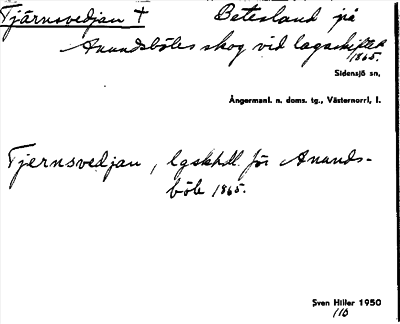 Tjärnsvedjan † Betesland på
Anundsböles skog vid lagaskiftet
1865.
Sidensjö sn,
Ångermanl. n. doms. tg., Västernorrl, l.
Tjernsvedjan, lgskhdl. för Anunds-
böle 1865.
Sven Hiller 1950
110